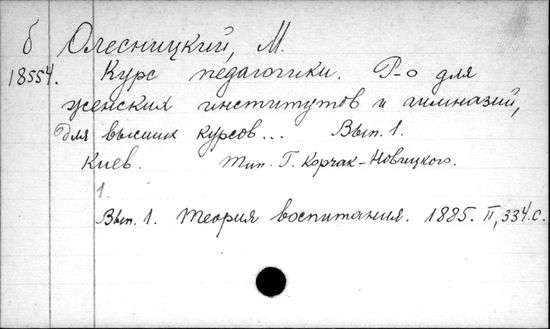 б Олесницкий, М.
18554. Курс педагогики. Р-о для
женских институтов и гимназий,
для высших курсов... Вып. 1.
Киев. Тип. Г. Корчак-Новицкого.
1.
Вып. 1. Теория воспитания. 1885. II, 334 с.